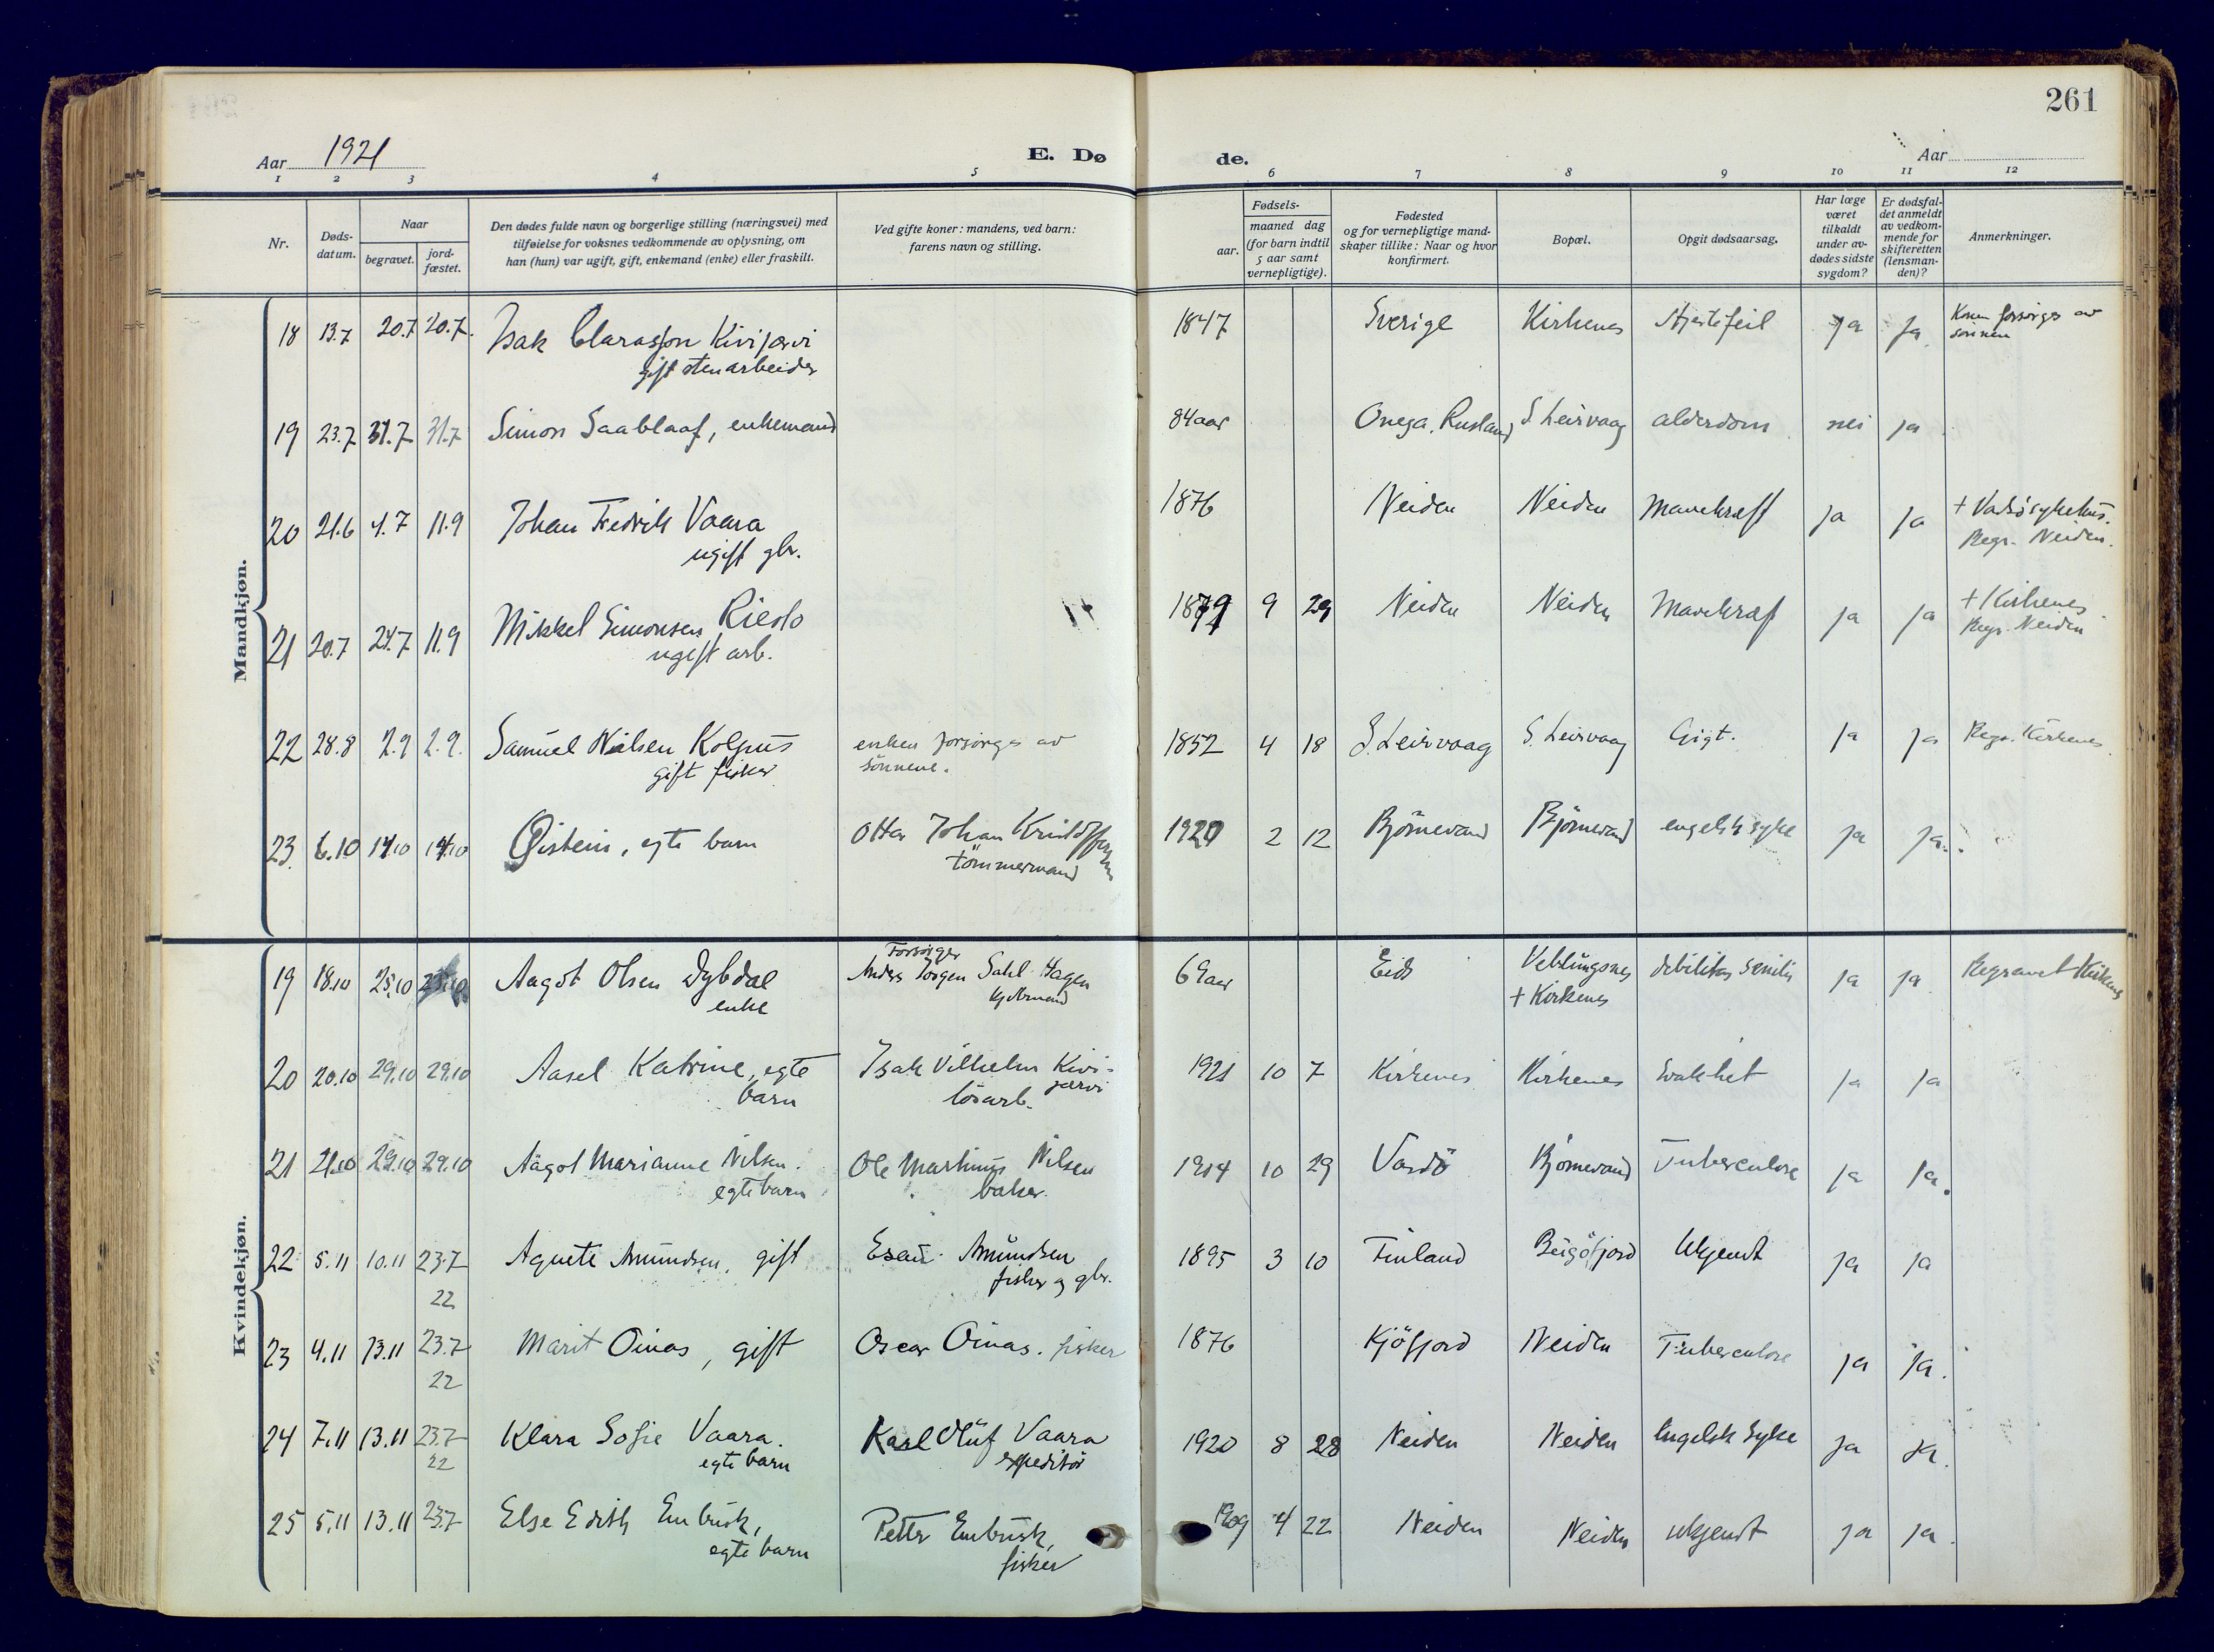 261
Aar 1921
E. Dø
de.
Aar
1 2 3 4 5 6 7 8 9 10 11 12
Nr.
Døds-
datum.
Naar
begravet.
jord-
fæstet.
Den dødes fulde navn og borgerlige stilling (næringsvei) med
tilføielse for voksnes vedkommende av oplysning, om
han (hun) var ugift, gift, enkemand (enke) eller fraskilt.
Ved gifte koner: mandens, ved barn:
farens navn og stilling.
Fødsels-
aar.
maaned dag
(for barn indtil
5 aar samt
vernepligtige).
Fødested
og for vernepligtige mand-
skaper tillike: Naar og hvor
konfirmert.
Bopæl.
Opgit dødsaarsag.
Har læge
været
tilkaldt
under av-
dødes sidste
sygdom?
Er dødsfal-
det anmeldt
av vedkom-
mende for
skifteretten
(lensman-
den)?
Anmerkninger.
Mandkjøn.
18 13.7 20.7 20.7. Isak Clarasson Kivijærvi 1847 Sverige Kirkenes Hjertefeil ja ja Konen forsørges av
gift stenarbeider sønnen
19 23.7 31.7 31.7 Simon Saablaaf, enkemand 84 aar Onega, Rusland S. Leirvaag alderdom nei ja
20 21.6 4.7 11.9 Johan Fredrik Vaara 1876 Neiden Neiden Mavekræft ja ja + Vadsø sykehus.
ugift gbr. Begr. Neiden.
21 20.7 24.7 11.9 Mikkel Simonsen Riesto 1879 9 29 Neiden Neiden Mavekræf ja ja + Kirkenes
ugift arb. Begr. Neiden
22 28.8 2.9 2.9. Samuel Nilsen Kolpus enken forsørges av 1852 4 18 S. Leirvaag S. Leirvaag Gigt. ja ja Begr. Kirkenes.
gift fisker sønnene.
23 6.10 14.10 14.10 Øistein, egte barn Otto Johan Kristoffersen 1920 2 12 Bjørnevand Bjørnevand engelsk syke ja ja.
tømmermand
Kvindekjøn.
Forsørger
19 18.10 25.10 25.10 Aagot Olsen Dybdal Anders Jørgen Sahl Hagen 69 aar Eid Veblungsnes debilitas senilis ja ja Begravet Kirkenes
enke + Kirkenes
20 20.10 29.10 29.10 Aasel Katrine, egte Isak Vilhelm Kivi- 1921 10 7 Kirkenes Kirkenes Svakhet ja ja
barn jærvi
løsarb.
21 21.10 29.10 29.10 Aagot Marianne Nilsen. Ole Martinus Nilsen 1914 10 29 Vardø Bjørnevand Tuberculose ja ja.
egte barn baker.
22 5.11 10.11 23.7 Agnete Amundsen, gift Esau Amundsen 1895 3 10 Finland Bugøfjord Ukjendt ja ja
22 fisker og gbr.
23 4.11 13.11 23.7 Marit Oinas, gift Oscar Oinas. fisker 1876 Kjøfjord Neiden Tuberculose ja ja.
22
24 7.11 13.11 23.7 Klara Sofie Vaara. Karl Oluf Vaara 1920 8 28 Neiden Neiden Engelsk Syke ja ja.
22 egte barn expeditør
25 5.11 13.11 23.7 Else Edith Enbusk, Petter Enbusk, 1909 4 22 Neiden Neiden ukjendt ja ja.
egte barn fisker